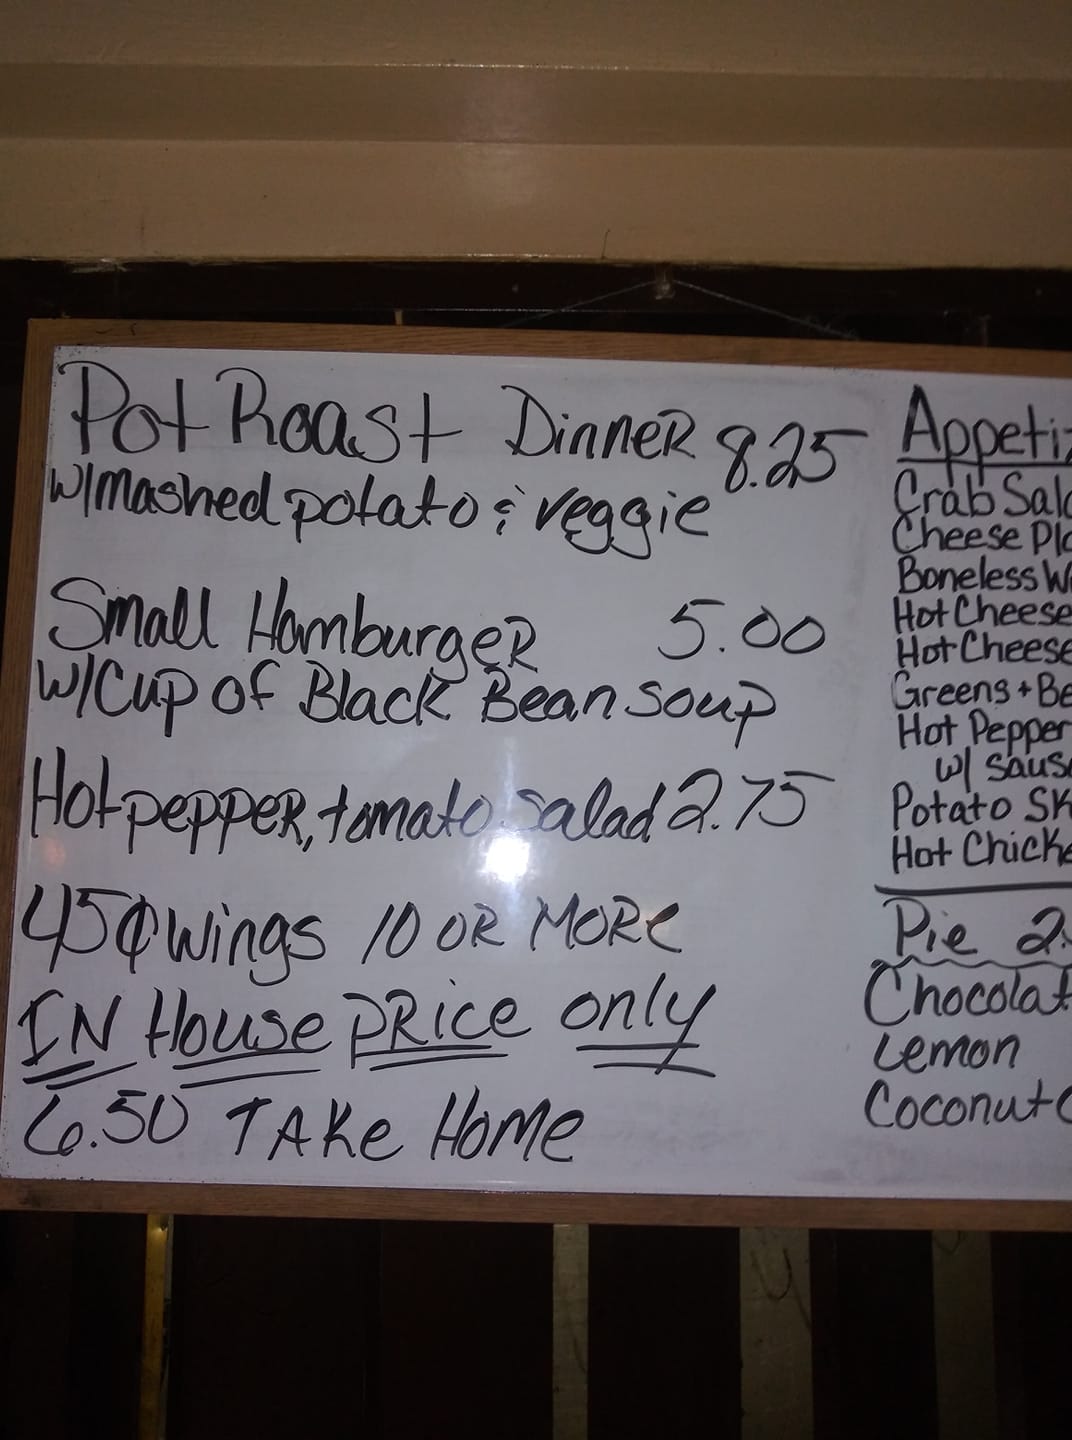 Pot Roast Dinner 8.25
w/mashed potato & veggie
Small Hamburger 5.00
w/Cup of Black Bean soup
Hot pepper, tomato salad 2.75
45¢ wings 10 OR MORE
IN House PRice only
6.50 TAKe HOMe
Crab
Cheese
Boneless
Hot Cheese
Hot Cheese
Greens +
Hot Pepper
w/
Potato
Hot
Pie
Lemon